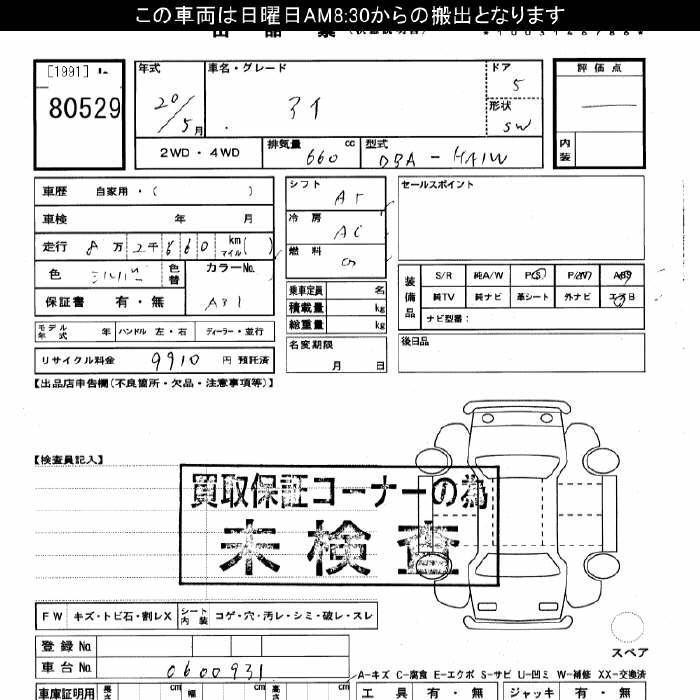 この車両は日曜日AM8:30からの搬出となります
出 品 票
[1991]
80529
年式
20/5月
車名・グレード
アイ
ドア
5
形状
SW
評 価 点
内装
2WD ・ 4WD
排気量 660 cc
型式
DBA - HA1W
車歴 自家用 ・ ( )
車検 年 月
走行 8万 2千 6 6 0 km マイル ( )
色 シルバー
色替
カラーNo.
A31
保証書 有 ・ 無
モデル年式 年
ハンドル 左 ・ 右
ディーラー ・ 並行
リサイクル料金 9910 円 預託済
シフト AT
冷房 AC
燃料 G
乗車定員 名
積載量 kg
総重量 kg
名変期限
月 日
セールスポイント
装備品
S/R 純A/W P/S P/W ABS
純TV 純ナビ 革シート 外ナビ エアB
ナビ型番:
後日品
【出品店申告欄(不良箇所・欠品・注意事項等)】
【検査員記入】
買取保証コーナーの為
未検査
FW キズ・トビ石・割レX
シート内装 コゲ・穴・汚レ・シミ・破レ・スレ
登録 No.
車台 No. 0600931
スペア
A-キズ C-腐食 E-エクボ S-サビ U-凹ミ W-補修 XX-交換済
車庫証明用 長さ cm 幅 cm 高さ cm
工具 有 ・ 無
ジャッキ 有 ・ 無